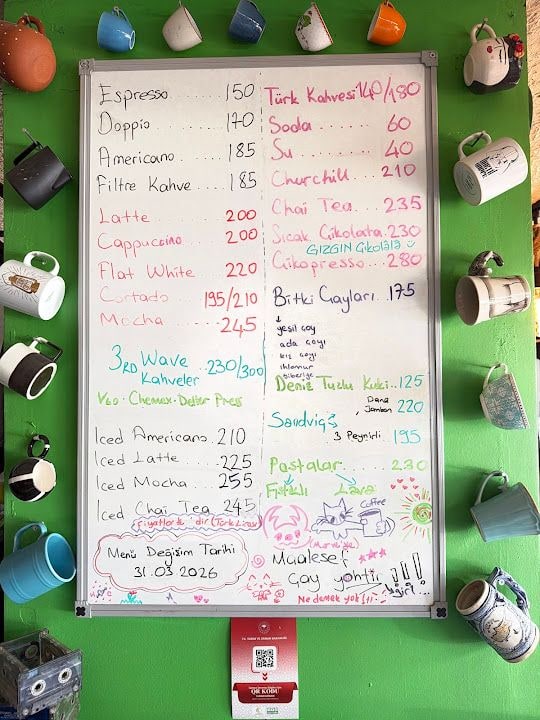 Espresso ..... 150
Doppio ........ 170
Americano ..... 185
Filtre Kahve ... 185
Latte ......... 200
Cappuccino .... 200
Flat White .... 220
Cortado ... 195/210
Mocha ......... 245
3RD Wave Kahveler ..230/300
V60 · Chemex · Delter Press
Iced Americano . 210
Iced Latte ..... 225
Iced Mocha ..... 255
Iced Chai Tea .. 245
fiyatlar ₺ 'dir (Türk Lirası)
Menü Değişim Tarihi
31.03.2026
Türk Kahvesi 140/180
Soda ......... 60
Su ........... 40
Churchill .... 210
Chai Tea ..... 235
Sıcak Çikolata. 230
GIZGIN Çikolata
Çikopresso... 280
Bitki Çayları . 175
yeşil çay
ada çayı
kış çayı
ıhlamur
Deniz Tuzlu Kuki .. 125
Dana Jambon 220
Sandviç
3 Peynirli 195
Pastalar ....... 230
Fıstıklı
Lava
Coffee
Maalesef
Çay yoktir !!!
Ne demek yok!!
T.C. TARIM VE ORMAN BAKANLIĞI
QR KODU